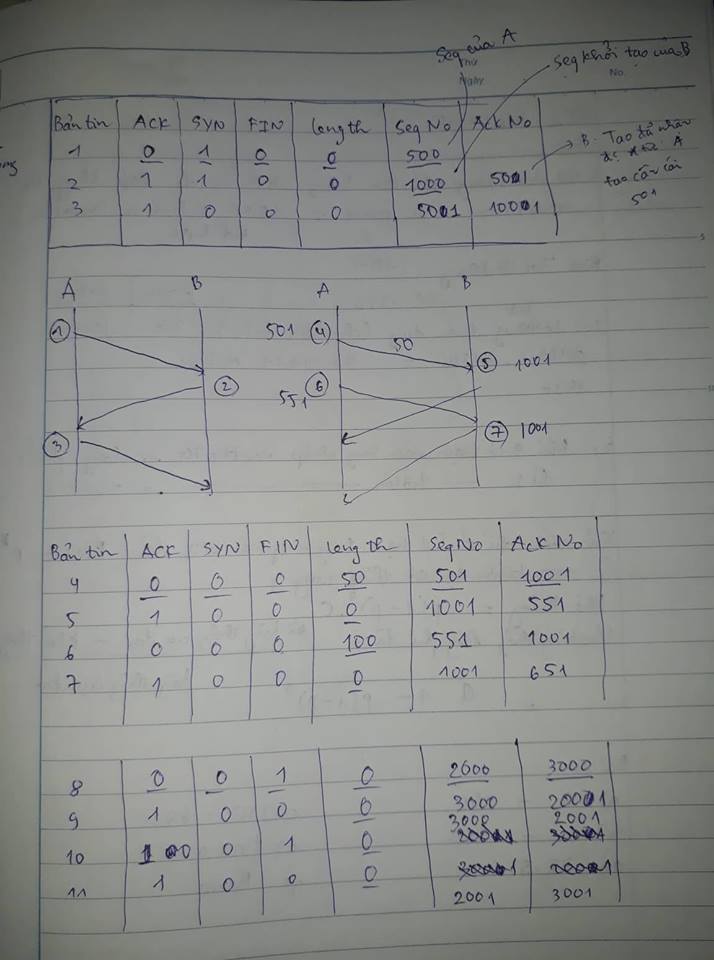 Seq của A
Seq khởi tạo của B
No.
Ngày
Bản tin ACK SYN FIN Length Seq No Ack No
1 0 1 0 0 500
2 1 1 0 0 1000 501
3 1 0 0 0 501 1001
B: Tao đã nhận
đc từ A
tao cần cái
501
A B A B
1 501 4 50 5 1001
2 551 6
3 7 1001
Bản tin ACK SYN FIN Length Seq No Ack No
4 0 0 0 50 501 1001
5 1 0 0 0 1001 551
6 0 0 0 100 551 1001
7 1 0 0 0 1001 651
8 0 0 1 0 2000 3000
9 1 0 0 0 3000 2001
10 0 0 1 0 3000 2001
11 1 0 0 0 2001 3001